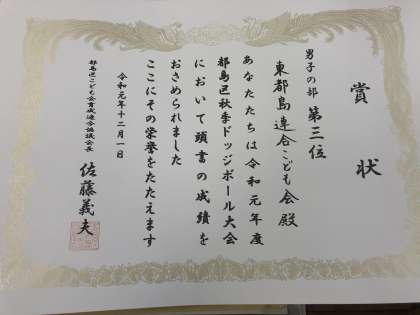 賞状
男子の部 第三位
東都島連合こども会殿
あなたたちは令和元年度
都島区秋季ドッジボール大会
において頭書の成績を
おさめられました
ここにその栄誉をたたえます
令和元年十二月一日
都島区こども会育成連合協議会長
佐藤義夫